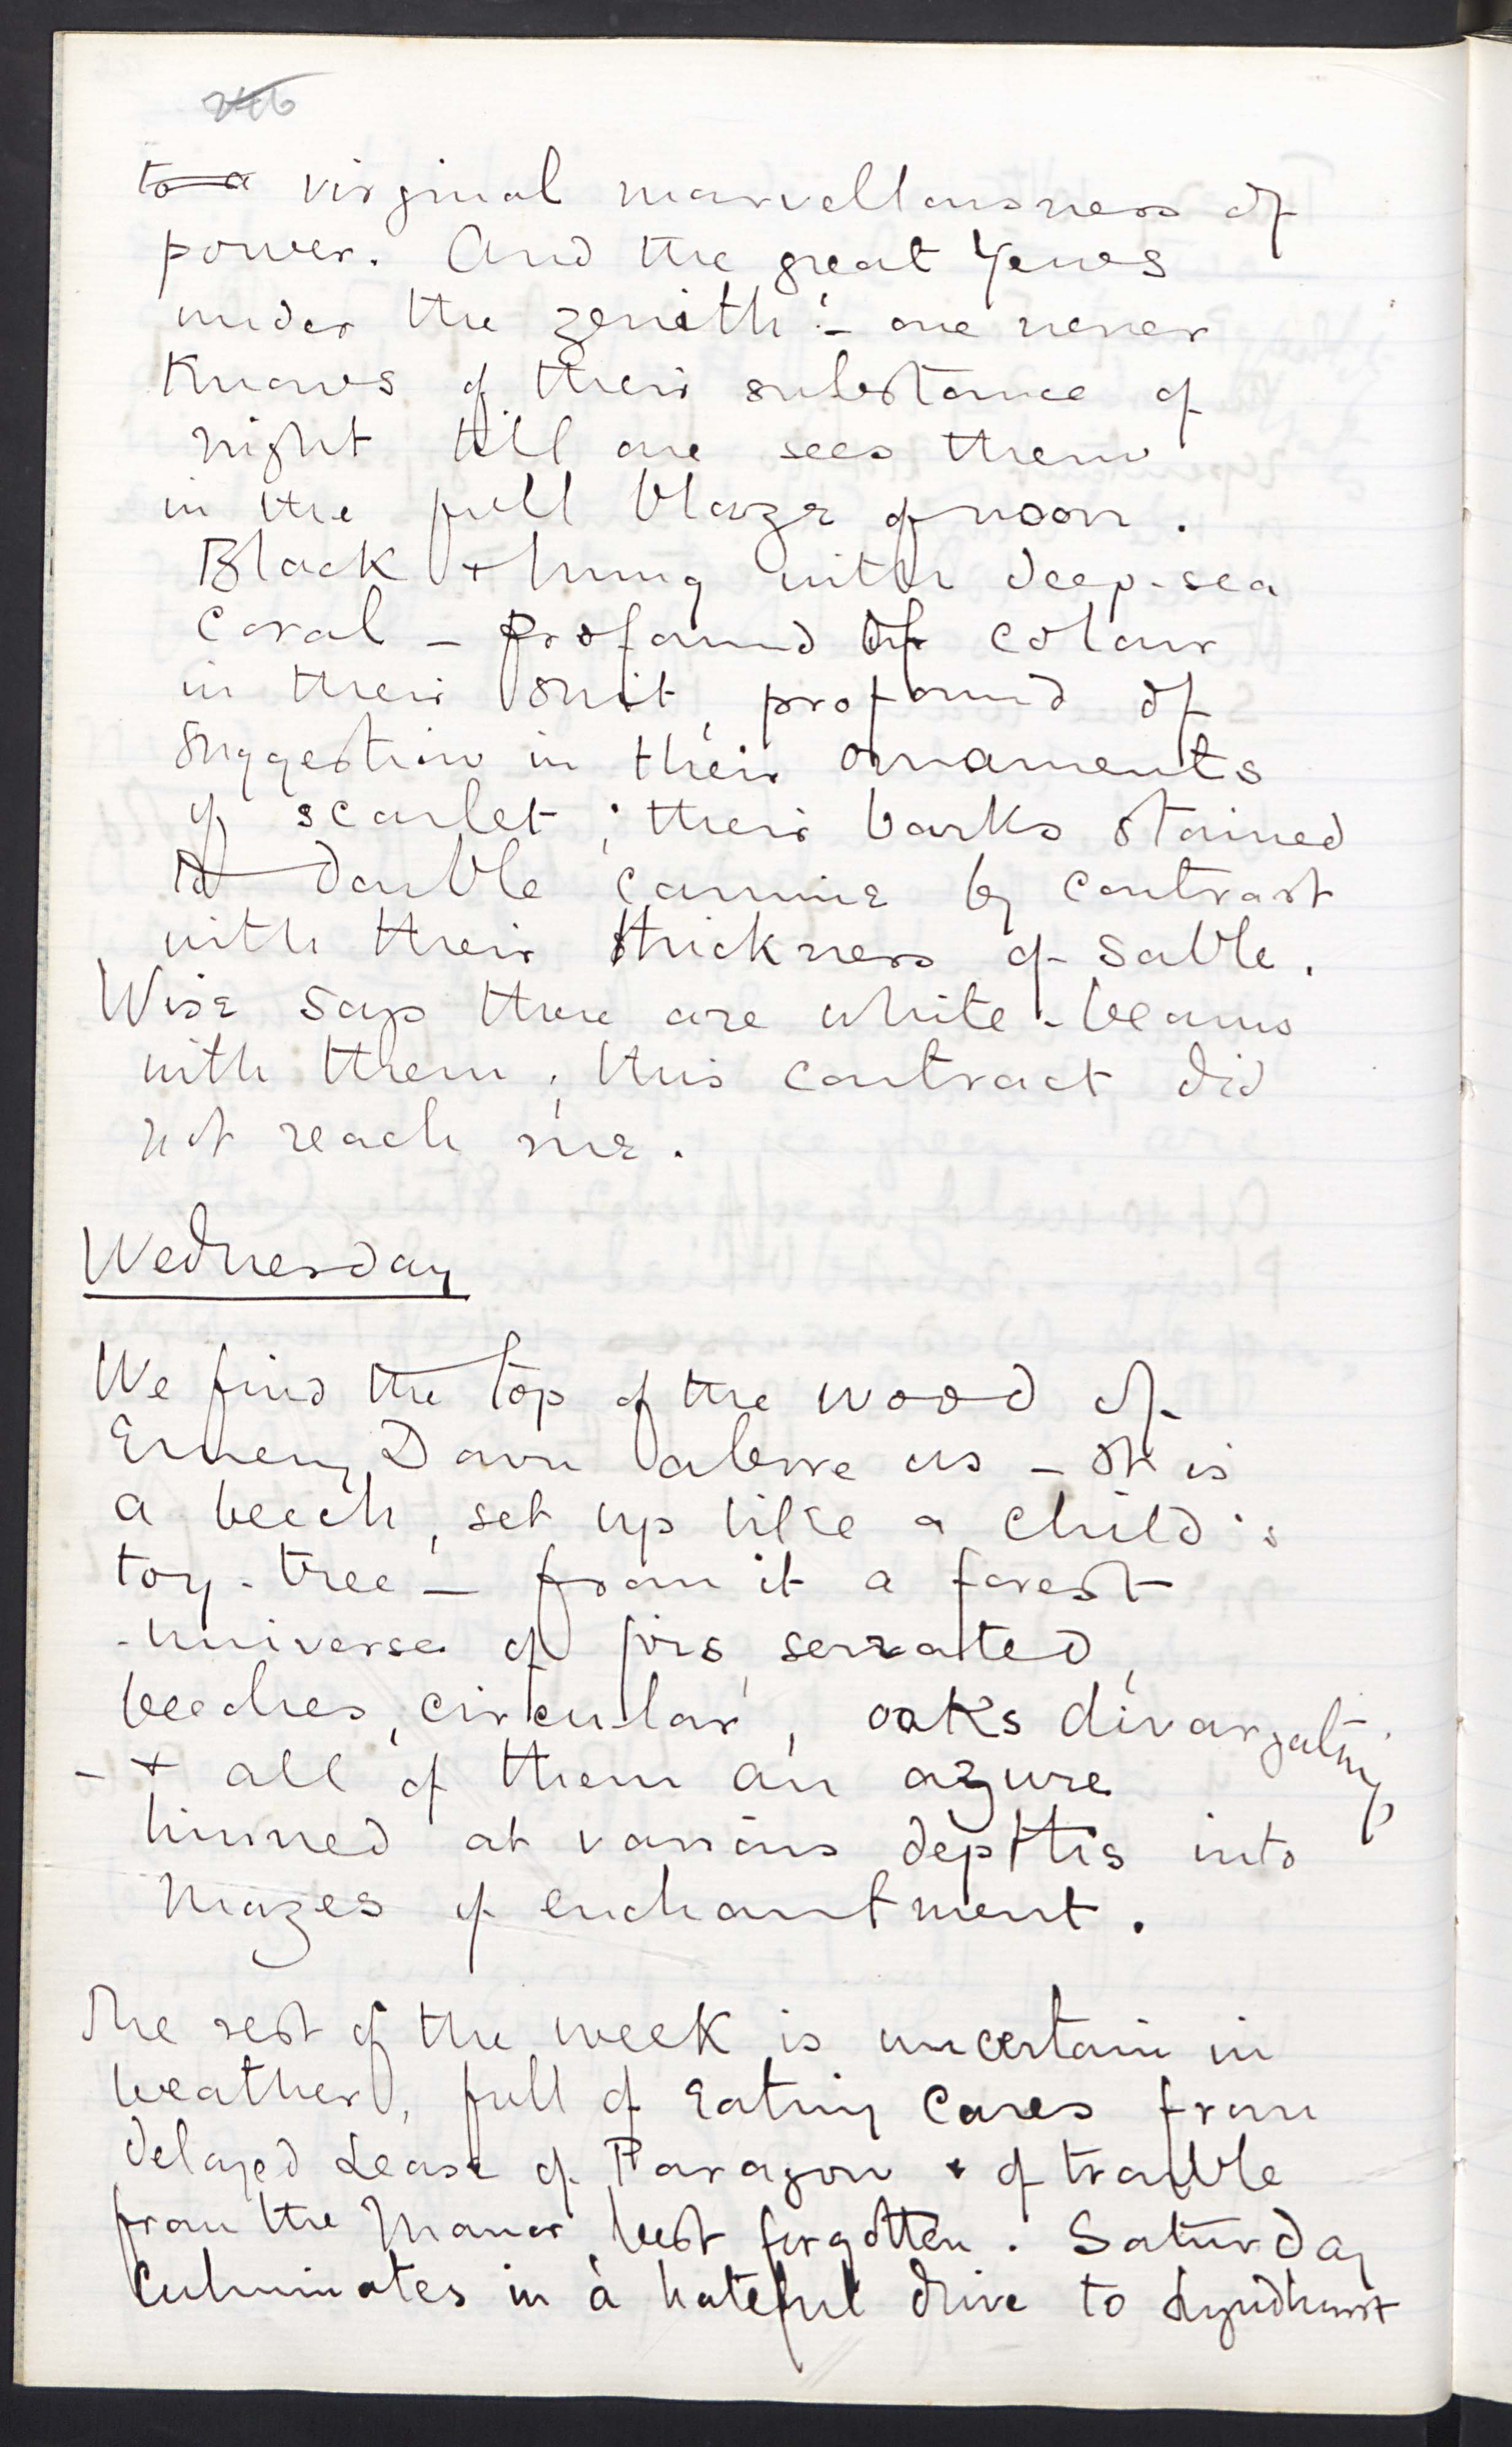 246
to a virginal marvellousness of
power. And the great Yews
under the zenith! – one never
knows of their substance of
night till one sees them
in the full blaze of noon.
Black + hung with deep-sea
coral – profound of colour
in their suit, profound of
suggestion in their ornaments
of scarlet; their barks stained
to double carmine by contrast
with their thickness of sable.
Wise says there are white-beams
with them; this contrast did
not reach me.
Wednesday
We find the top of the wood of
Emery Down above us – It is
a beech, set up like a child's
toy-tree – from it a forest
-universe of firs, serrated,
beeches, circular, oaks divargating
– + all of them an azure
hinned at various depths into
mazes of enchantment.
The rest of the week is uncertain in
weather, full of Eating Cares from
delayed Lease of Paragon + of trouble
from the Manor, best forgotten. Saturday
culminates in a hateful drive to Lyndhurst